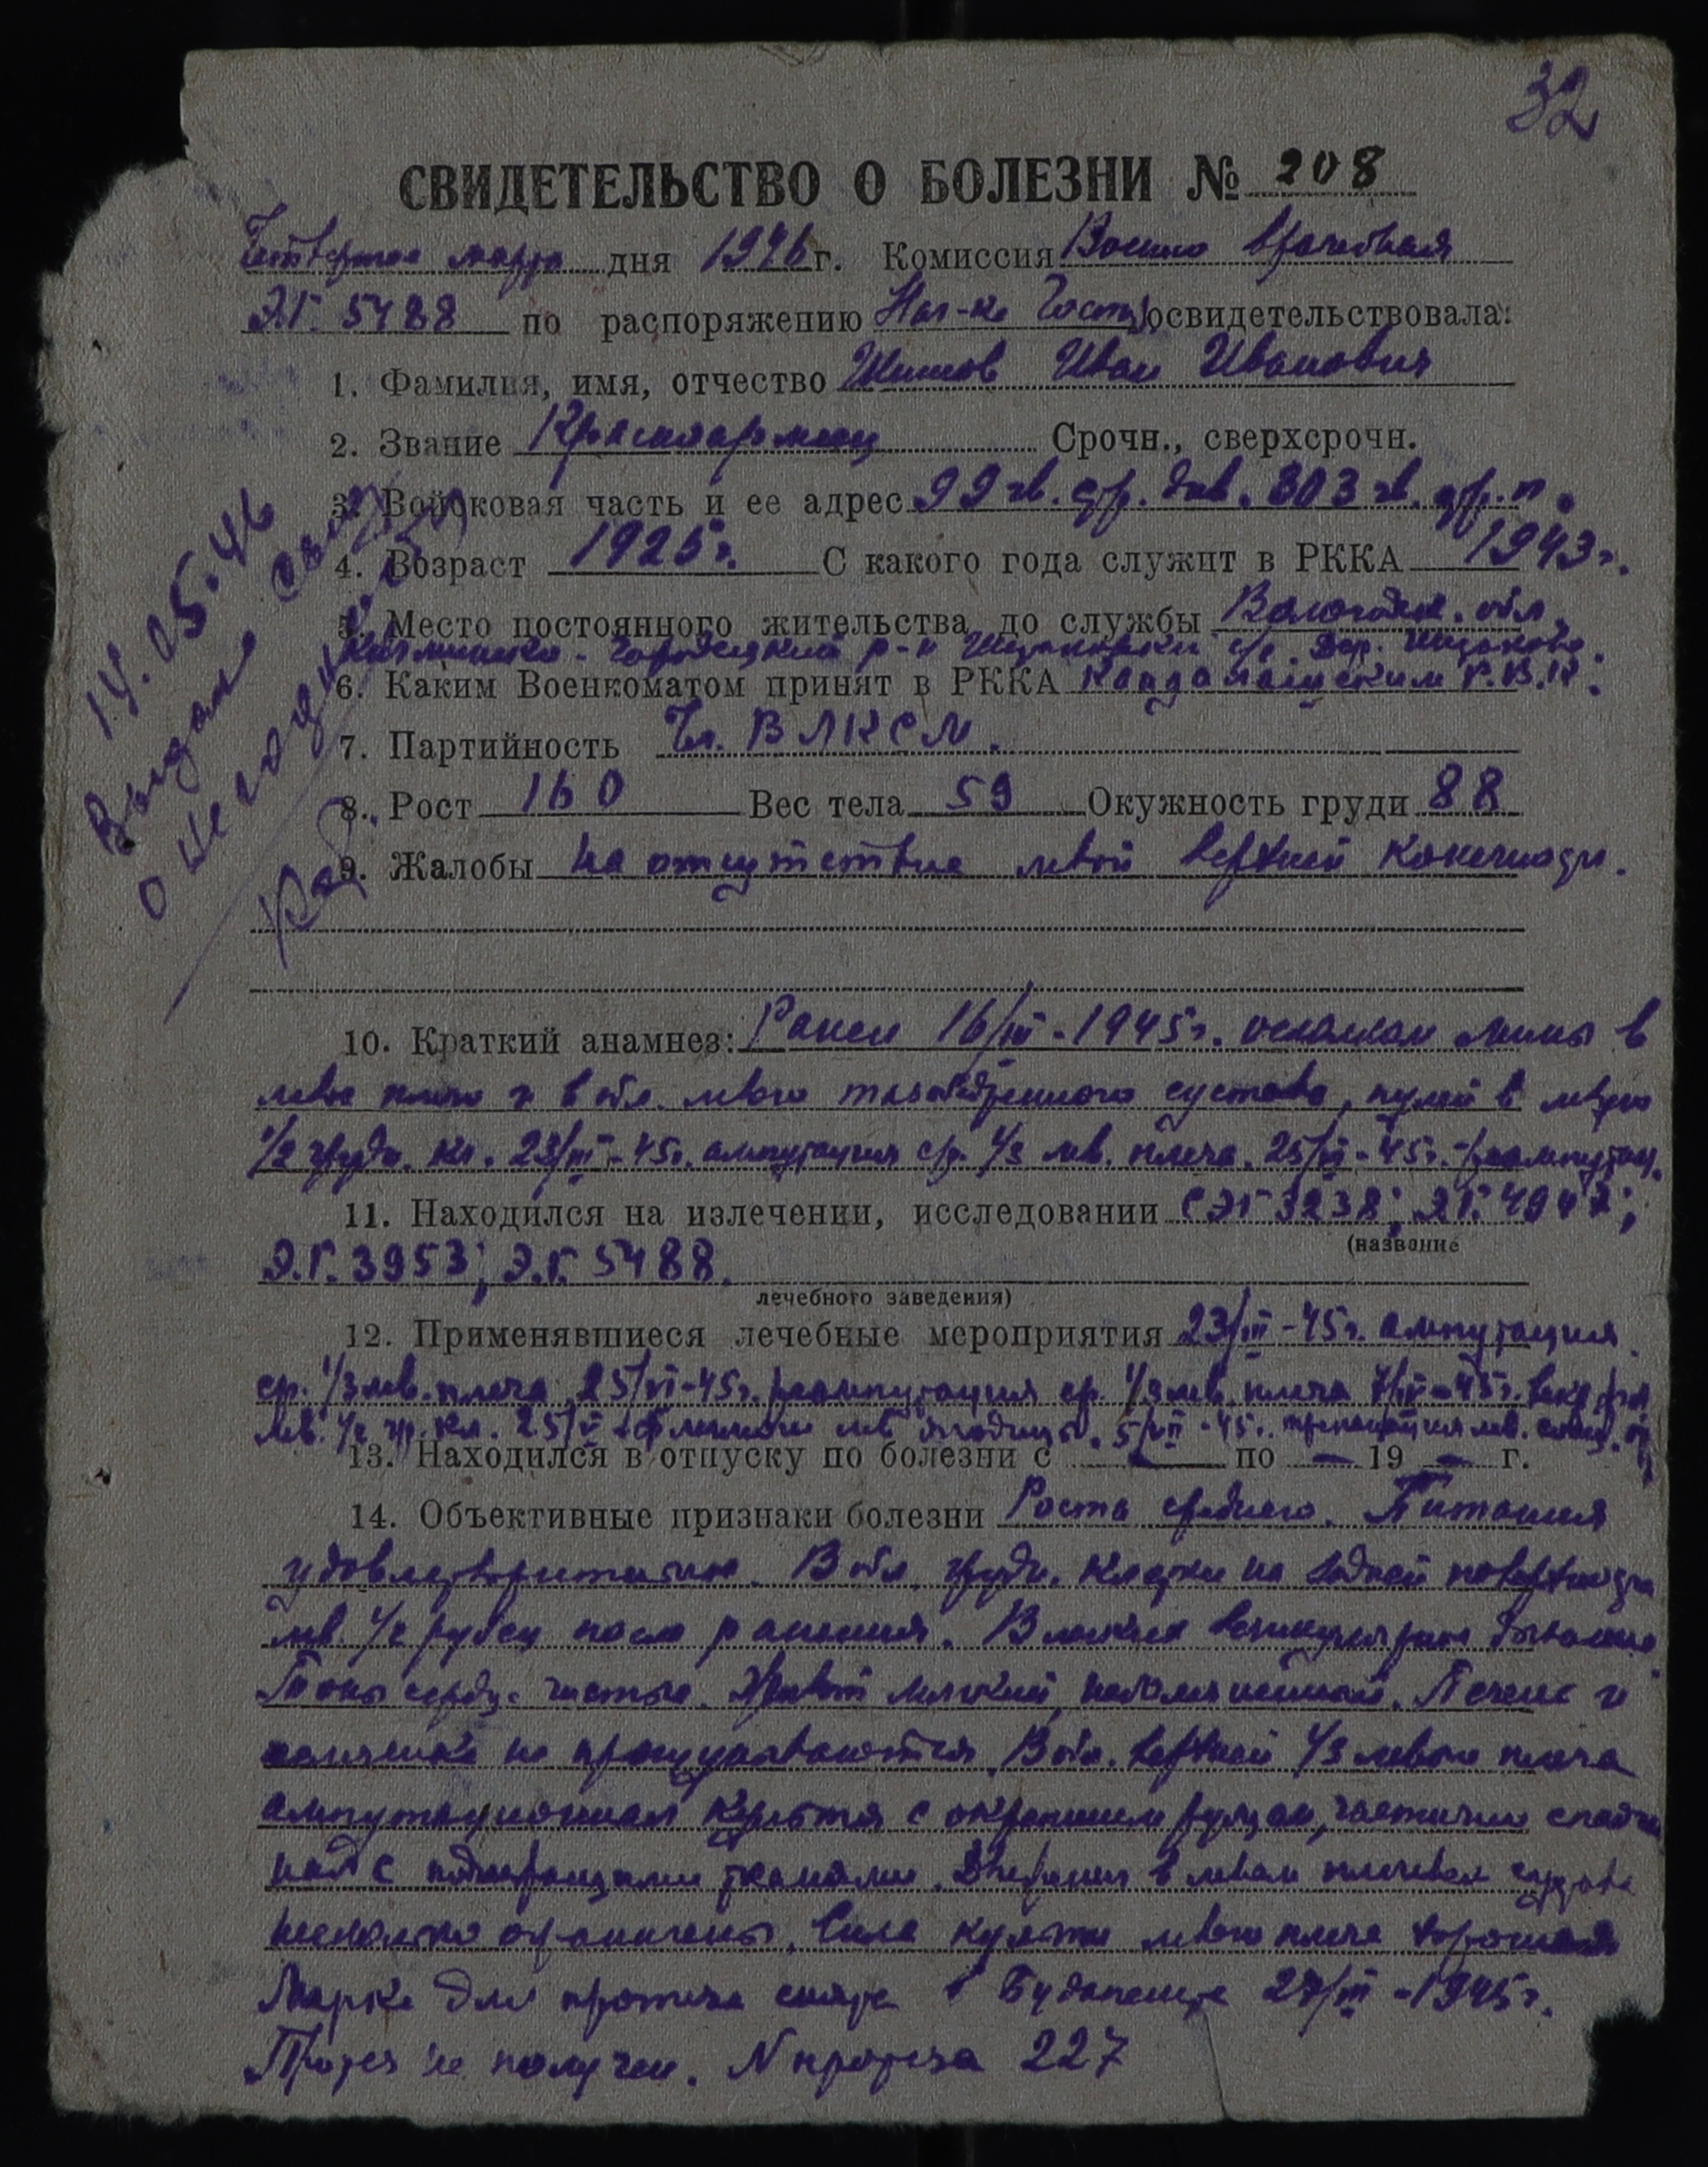 32
СВИДЕТЕЛЬСТВО О БОЛЕЗНИ № 208
Четвертое марта дня 1946 г. Комиссия Военно врачебная
Э.Г. 5488 по распоряжению Нач-ка Госп. освидетельствовала:
1. Фамилия, имя, отчество Иван Иванович
2. Звание Красноармеец Срочн., сверхсрочн.
3. Войсковая часть и ее адрес 99 гв. стр. див. 303 гв. стр. п.
4. Возраст 1925 г. С какого года служит в РККА 1943 г.
5. Место постоянного жительства до службы Вологодск. обл.
Кичменско-Городецкий р-н с/с. Дер.
6. Каким Военкоматом принят в РККА Кандалакшским Р.В.К.
7. Партийность Чл. ВЛКСМ.
8. Рост 160 Вес тела 59 Окужность груди 88
9. Жалобы на отсутствие левой верхней конечности.
14.05.46
Выдана
о негодн
10. Краткий анамнез: Ранен 16/III-1945 г. осколком мины в
левое плечо и в обл. левого тазобедренного сустава, пулей в левую
1/2 грудн. кл. 23/III-45 г. ампутация ср. 1/3 лев. плеча. 25/VI-45 г. реампутац.
11. Находился на излечении, исследовании СЭГ 3238; ЭГ. 4947;
(название
Э.Г. 3953; Э.Г. 5488.
лечебного заведения)
12. Применявшиеся лечебные мероприятия 23/III-45 г. ампутация
ср. 1/3 лев. плеча, 25/VI-45 г. реампутация ср. 1/3 лев. плеча 7/IV-45 г. вскрытие
лев. 1/2 гр. кл. 25/V флегмоны лев ягодицы. 5/VII-45 г. лев.
13. Находился в отпуску по болезни с — по — 19 — г.
14. Объективные признаки болезни Роста среднего. Питания
удовлетворительное. В обл. грудн. клетки на задней поверхности
лев. 1/2 рубец после ранения. В легких везикулярное дыхание.
Тоны сердца чистые. Живот мягкий, безболезненный. Печень и
селезенка не прощупываются. В обл. верхней 1/3 левого плеча
ампутационная культя с окрепшим рубцом, частично спаян
ная с подлежащими тканями. Движения в левом плечевом суставе
несколько ограничены. Сила культи левого плеча хорошая
Мерка для протеза снята в Будапеште 27/III-1945 г.
Протез не получен. N протеза 227